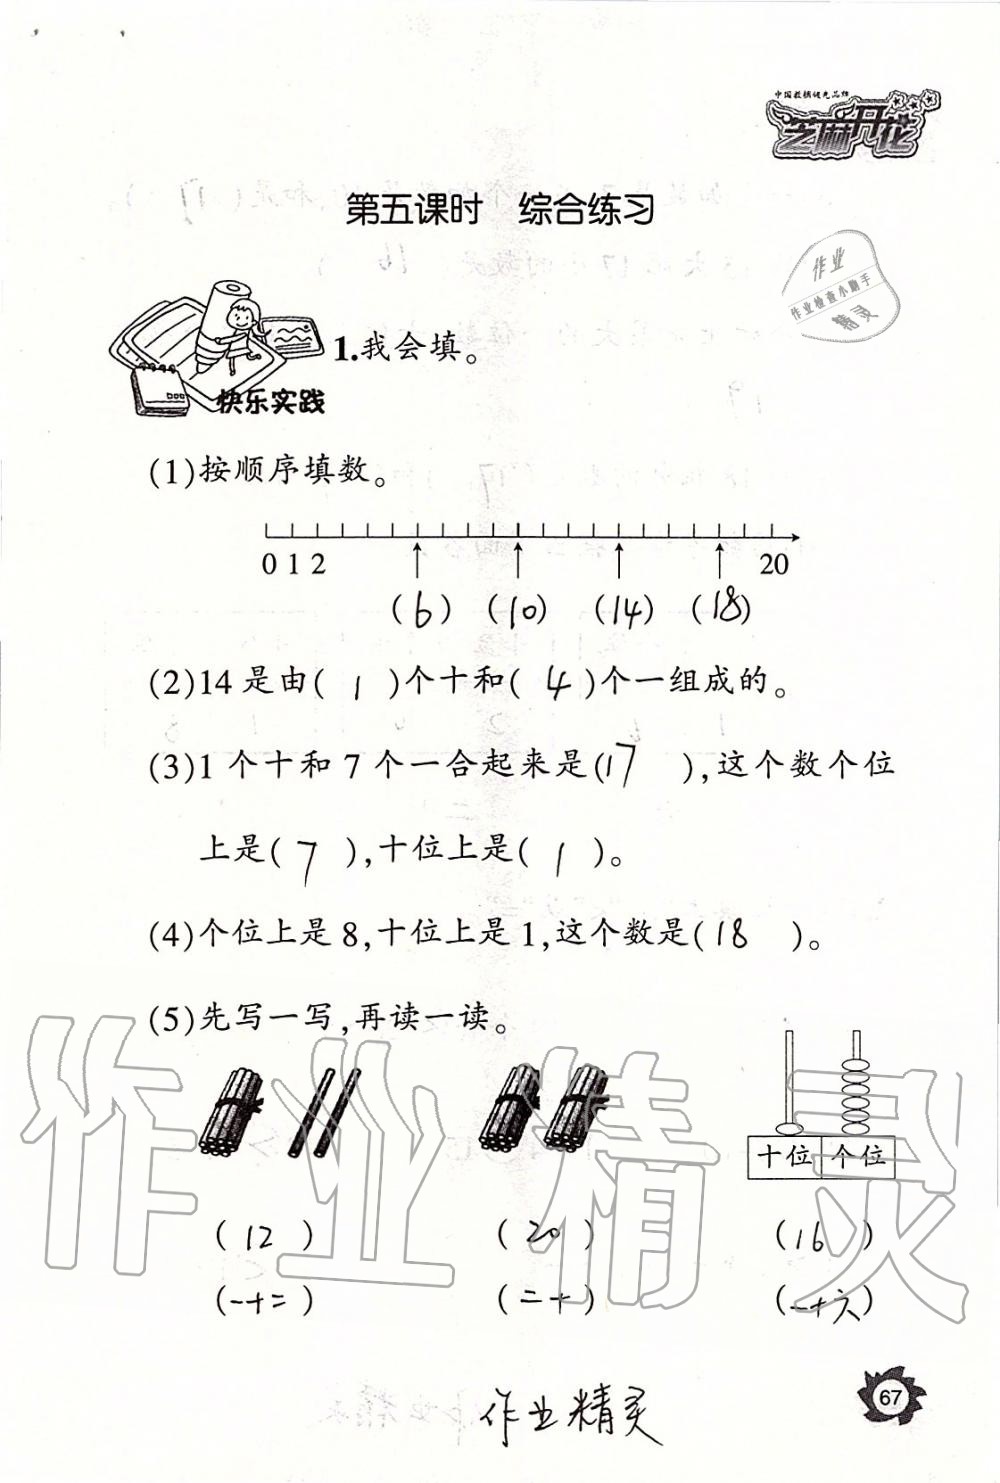 中国教辅领先品牌
芝麻开花
第五课时　综合练习
作业
作业检查小助手
精灵
快乐实践
1.我会填。
(1)按顺序填数。
0 1 2 20
(6) (10) (14) (18)
(2)14是由( 1 )个十和( 4 )个一组成的。
(3)1个十和7个一合起来是(17 ),这个数个位
上是( 7 ),十位上是( 1 )。
(4)个位上是8,十位上是1,这个数是(18 )。
(5)先写一写,再读一读。
十位 个位
(12) (20) (16)
(一十二) (二十) (一十六)
作业精灵
作业精灵
67